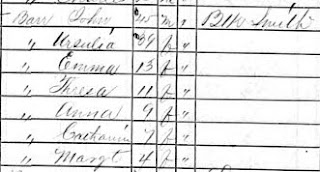 Barr John m " Blk Smith
" Ursulia 39 f "
" Emma 13 f "
" Thresa 11 f "
" Anna 9 f "
" Catharin 7 f "
" Margt 4 f "